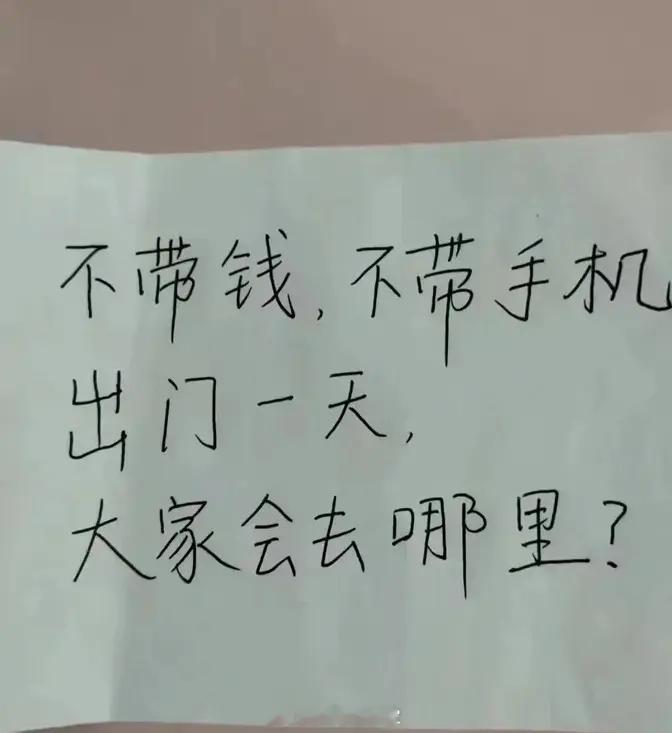 不带钱,不带手机
出门一天,
大家会去哪里?